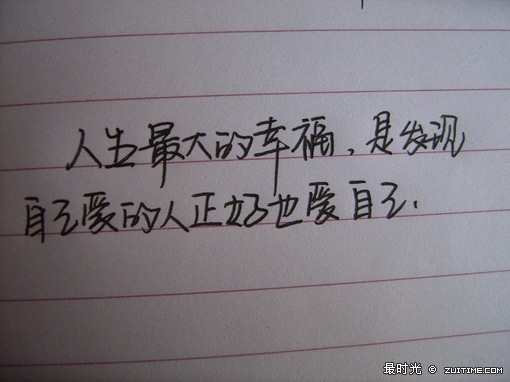 人生最大的幸福，是发现
自己爱的人正好也爱自己.
最时光 © ZUITIME.COM